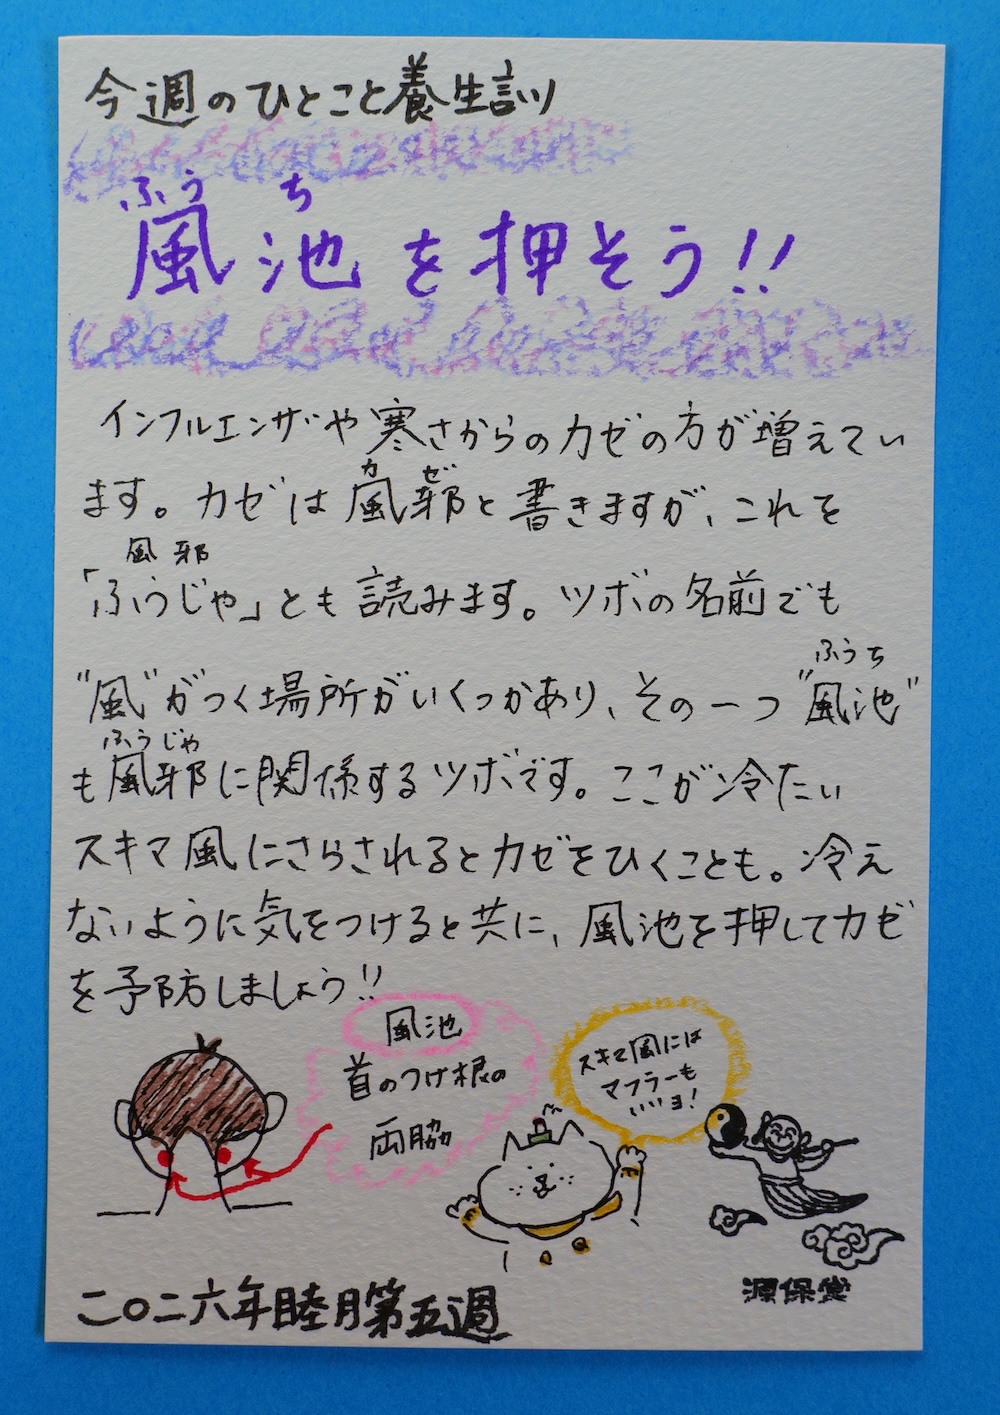 今週のひとこと養生訓
ふうち
風池を押そう!!
インフルエンザや寒さからのカゼの方が増えてい
カゼ
ます。カゼは風邪と書きますが、これを
風邪
「ふうじゃ」とも読みます。ツボの名前でも
ふうち
"風"がつく場所がいくつかあり、その一つ"風池"
ふうじゃ
も風邪に関係するツボです。ここが冷たい
スキマ風にさらされるとカゼをひくことも。冷え
ないように気をつけると共に、風池を押してカゼ
を予防しましょう!!
風池
首のつけ根の
両脇
スキマ風には
マフラーも
いいヨ!
源保堂
二〇二六年睦月第五週